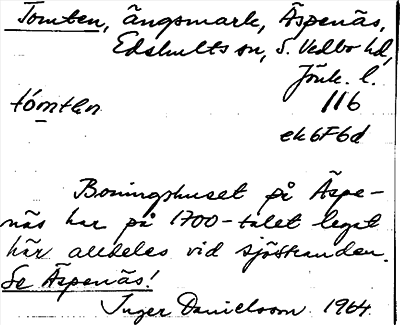 Tomten, ängsmark, Äspenäs,
Edshults sn, S. Vedbo hd,
Jönk. l.
tómtən 116
ek6F6d
Boningshuset på Äspe-
näs har på 1700-talet legat
här alldeles vid sjöstranden.
Se Äspenäs!
Inger Danielsson 1964